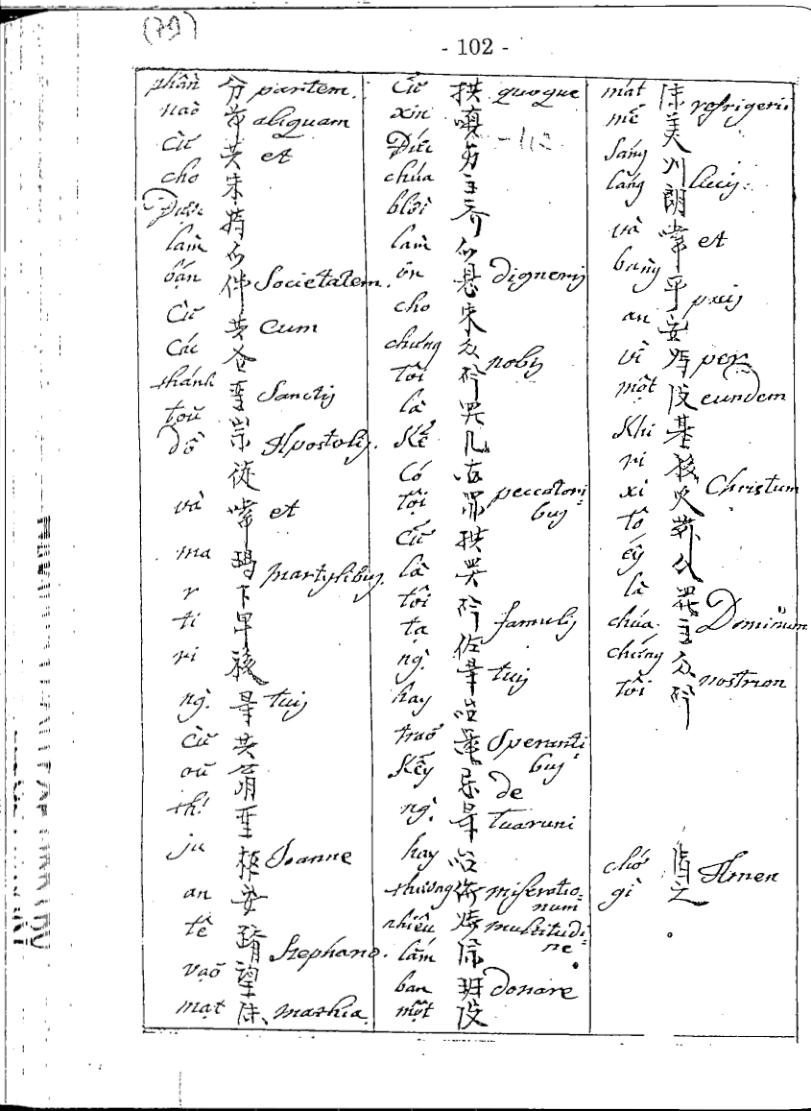 (79)
- 102 -
phần 分 partem.
nào 芇 aliquam
Cù 共 et
cho 朱
Được 特
làm 
bạn 伴 Societatem.
Cù 共 Cum
Các 各
thánh 聖 Sanctis
toū 宗 Apostolis.
đồ 徒
và 
et
ma 瑪 martyribus.
r
ti
ri
ng̀. 㝵 tuis
Cù 共
oū 翁
th́. 聖
ju Joanne
an 安
tê Stephano.
vaō 望
mat Mathia.
Cũ 拱 quoque
xin 嗔
Đức
chúa 主
blời
làm
ơn 恩 digneris
cho 朱
chúng 眾 nobis
tôi 碎
là 羅
Kẻ 几
Có 固 peccatori=
tội 罪 bus
Cũ 拱
là 羅
tôi 碎 famulis
tạ 佐
ng̀. 㝵 tuis
hay 咍
Speranti
bus
Kẻy de
ng̀. 㝵 tuarum
hay 咍
thương miseratio=
num
nhiều multitudi=
lắm ne
ban 班 donare
một 没
mát refrigerii
mẻ 美
Sáng
láng 朗 lucis.
và et
bằng 平 pacis
an 安
vì 為 per
một 没 eundem
Khi 基 Christum
ri
xi
tô
ếy
là 羅
chúa. 主 Dominum
chúng 眾
tôi 碎 nostrum
chớ Amen
gì 之